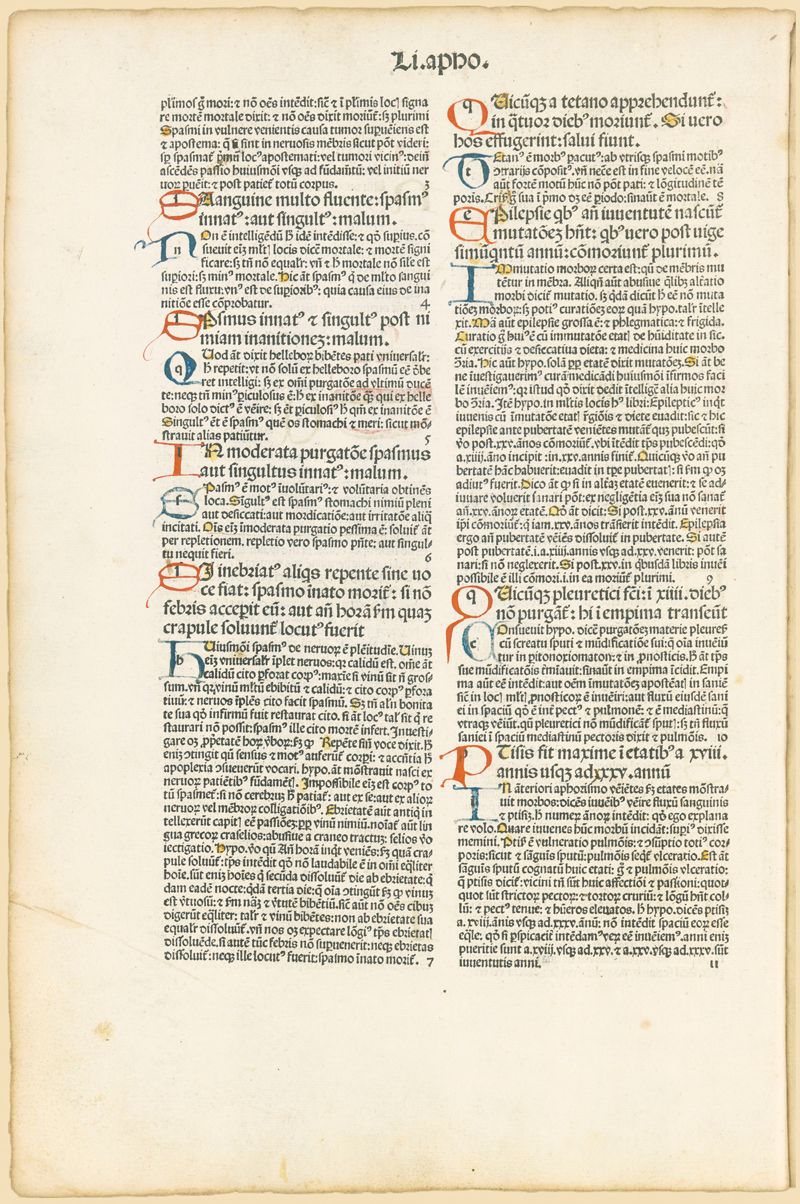 Li.apho.
plimos g̃ mori: ⁊ nõ oẽs intẽdit: sic̃ ⁊ ĩ plimis locꝭ signa
re mortẽ mortale dixit: ⁊ nõ oẽs dixit moriũt̃: sꝫ plurimi
Spasmi in vulnere venientis causa tumor supuẽiens est
⁊ apostema: sint in neruosis mẽbris sicut põt videri:
sp̃ spasmat̃ locꝰ apostemati: vel tumori vicinꝰ: deiñ
ascẽdẽs passio huiusmõi vsqꝫ ad fũdam̃tũ: vel initiũ ner
uoꝝ puẽit: ⁊ post patiet̃ totũ corpus. 3
SAnguine multo fluente: spasmꝰ
innatꝰ: aut singultꝰ: malum.
NOn ẽ intelligẽdũ idẽ intẽdisse: ⁊ qõ supiꝰ. cõ
sueuit eiꝫ mltꝭ locis dicẽ mortale: ⁊ mortẽ signi
ficare: sꝫ tñ nõ equalr̃: vñ ⁊ mortale nõ sile est
supiori: sꝫ minꝰ mortale. Hic ãt spasmꝰ q̃ de mlto sangui
nis est fluxu: vnꝰ est de supioribꝰ: quia causa eius de ina
nitiõe esse cõprobatur. 4
SPasmus innatꝰ ⁊ singultꝰ post ni
miam inanitionez: malum.
QUod ãt dixit helleboꝝ bibẽtes pati vniuersalr̃:
repetit: vt nõ solũ ex helleboro spasmũ eẽ õbe
ret intelligi: sꝫ ex oĩmi purgatõe ad vltimũ ducẽ
te: necqꝫ tñ minꝰ piculosius ẽ: ex inanitõe q̃ꝫ qui ex helle
boro solo dictꝰ ẽ vẽire: sꝫ ẽt piculosĩ qm̃ ex inanitõe ẽ
Singultꝰ ẽt ẽ spasmꝰ que os stomachi ⁊ meri: sicut mõ⸗
strauit alias patiũtur. 5
IN moderata purgatõe spasmus
aut singultus innatꝰ: malum.
SPasmꝰ ẽ motꝰ ĩuolũtariꝰ: ⁊ volũtaria obtinẽs
loca. Sĩgultꝰ est spasmꝰ stomachi nimiũ pleni
aut desiccati: aut mordicatiõe: aut irritatõe aliq̃
incitati. Oĩs eiꝫ ĩmoderata purgatio pessima ẽ: soluit̃ ãt
per repletionem. repletio vero spasmo pñte: aut singul⸗
tu nequit fieri. 6
SI inebriatꝰ aliqs repente sine uo
ce fiat: spasmo ĩnato morit̃: si nõ
febris acceperit eũ: aut añ horã s̃m quaꝫ
crapule soluunt̃ locutꝰ fuerit
HUiusmõi spasmꝰ de neruoꝝ ẽ plẽitudĩe. Uinuꝫ
eiꝫ vniuersalr̃ ĩplet neruos: qꝛ calidũ est. om̃e ãt
calidũ cito pforat corpꝰ: maxĩe si vinũ sit ñ gros⸗
sum. vñ qꝛ vinũ mltũ ebibitũ ⁊ calidũ: ⁊ cito corpꝰ pfora
tiuũ: ⁊ neruos ĩplẽs cito facit spasmũ. Sꝫ tñ alñ bonita
te sua qõ infirmũ fuit restaurat cito. si ãt locꝰ talꝭ sit q̃ re
staurari nõ possit: spasmꝰ ille cito mortẽ infert. Inuesti⸗
gare oꝫ ppetatẽ hoꝝ ṽboꝝ: sꝫ Repẽte siñ voce dixit.
eniꝫ ↄtingit qũ sensus ⁊ motꝰ auferũt̃ corpi: ⁊ accñtia
apoplexia ↄsueuerũt vocari. hypo. ãt mõstrauit nasci ex
neruoꝝ patiẽtibꝰ fũdam̃tꝭ. Impossibile eiꝫ est corpꝰ to
tũ spasmet̃: si nõ cerebruꝫ patiat̃: aut ex se: aut ex alioꝝ
neruoꝝ vel mẽbroꝝ colligatiõibꝰ. Ebrietatẽ aut antiqi in
tellexerũt capitꝭ eẽ passiõeꝫ: pp vinũ nimiũ. noĩat̃ aũt lin
gua grecoꝝ craselios: abusiue a craneo tractuꝫ: selios vo
iectigatio. Hypo. vo qũ Añ horã inqt veniẽs: sꝫ quã cra⸗
pule soluũt̃: tps intẽdit qõ nõ laudabile ẽ in oĩmi eqliter
hoĩe. sũt eniꝫ hoĩes q̃ secũda dissoluũt̃ die ab ebrietate: q̃
dam eadẽ nocte: qdã tertia die: oĩa ↄtingũt sꝫ vinuꝫ
est ṽtuosũ: ⁊ s̃m nãꝫ ⁊ ṽtutẽ bibẽtiũ. sic̃ aũt nõ oẽs cibuꝫ
digerũt eqliter: talr̃ ⁊ vinũ bibẽtes: non ab ebrietate sua
equalr̃ dissoluũt̃. vñ nos oꝫ expectare lõgiꝰ tps ebrietatꝭ
dissoluẽde. si autẽ tũc febris nõ supuenerit: necqꝫ ebrietas
dissoluit̃: necqꝫ ille locutꝰ fuerit: spasmo ĩnato morit̃. 7
QUicũqꝫ a tetano apprehendunt̃:
in q̃tuor diebꝰ moriunt̃. Si uero
hos effugerint: salui fiunt.
TEtanꝰ ẽ morbꝰ pacutꝰ: ab vtrisqꝫ spasmi motibꝰ
ↄtrarijs cõpositꝰ. vñ necẽ est in fine velocẽ eẽ. nã
aũt forte motũ hũc nõ põt pati: ⁊ lõgitudinẽ tẽ
poris. Crisꝭ g̃ sua ĩ pmo oꝫ eẽ piodo: sinaũt ẽ mortale. 8
EPilepsie qbꝰ añ iuuentutẽ nascũt̃
mutatõeꝫ hñt: qbꝰ uero post uige
simũqntũ annũ: cõmoriunt̃ plurimũ.
IMmutatio morboꝝ certa est: qũ de mẽbris mu
tẽtur in mẽbra. Aliqñ aũt abusiue qlibꝫ alt̃atio
morbi dicit̃ mutatio. sꝫ qdã dicũt eẽ nõ muta
tiõeꝫ morboꝝ: sꝫ potiꝰ curatiõeꝫ eoꝝ quã hypo. talr̃ ĩtelle
xit. Mã aũt epilepsie grossa ẽ: ⁊ phlegmatica: ⁊ frigida.
Curatio g̃ huiꝰ ẽ cũ immutatõe etatꝭ de hũiditate in sic.
cũ exercitijs ⁊ desiccatiua dieta: ⁊ medicina huic morbo
ↄria. Hic aũt hypo. solã pp etatẽ dixit mutatõeꝫ. Si ãt be
ne ĩuestigauerimꝰ curãꝰ medicãdi huiusmõi ĩfirmos faci
lẽ inuẽiemꝰ: qꝛ istud qõ dixit dedit ĩtelligẽ alia huic mor
bo ↄria. Itẽ hypo. in mltis locis hꝰ libri: Epilepticꝰ inqt
iuuenis cũ ĩmutatõe etatꝭ r̃giõis ⁊ diete euadit: sic ⁊ hic
epilepsie ante pubertatẽ veniẽtes mutãt̃ quꝫ pubescũt: si
ṽo post. xxv. ãnos cõmoriũt̃. vbi ĩtẽdit tps pubescẽdi: qõ
a. xiiij. ãno incipit: in. xxv. annis finit̃. Quicũqꝫ ṽo añ pu
bertatẽ hãc habuerit: euadit in tpe pubertatꝭ: si s̃m oꝫ
adiutꝰ fuerit. Dico ãt si in alt̃aꝫ etatẽ euenerit: ⁊ se ad⸗
iuuare voluerit sanari põt: ex negligẽtia eiꝫ sua nõ sanat̃
añ. xxv. ãnoꝝ etatẽ. Qõ ãt dicit: Si post. xxv. ãnũ venerit
ipi cõmoriũt̃: iam. xxv. ãnos trãsierit intẽdit. Epilepsia
ergo añ pubertatẽ vẽiẽs dissoluit̃ in pubertate. Si autẽ
post pubertatẽ. i. a. xiiij. annis vsqꝫ ad. xxv. venerit: põt sa
nari: si nõ neglexerit. Si post. xxv. in qbusdã libris inuẽi
possibile ẽ illi cõmori. i. in ea moriũt̃ plurimi. 9
QUicũqꝫ pleuretici fc̃i: ĩ xiiij. diebꝰ
nõ purgãt̃: hi ĩ empima transeũt
COnsueuit hypo. dicẽ purgatõeꝫ materie pleuresꝭ
cũ screatu sputi ⁊ mũdificatiõe sui: oĩa inuẽiũ
tur in pitonoxiomaton: ⁊ in pnosticis. ãt tps
sue mũdificatõis ẽmiauit: sinaũt in empima ĩcidit. Empi
ma aũt eẽ intẽdit: aut oẽm ĩmutatõeꝫ apostẽatꝭ in saniẽ
sic̃ in locꝭ mltꝭ pnosticoꝝ ẽ inuẽiri: aut fluxũ eiusdẽ sani
ei in spaciũ qõ ẽ int̃ pectꝰ ⁊ pulmonẽ: ⁊ ẽ mediastinũ:
vtraqꝫ vẽiũt. qũ pleuretici nõ mũdificãt̃ sputꝭ: sꝫ tñ fluxũ
saniei ĩ spaciũ mediastinũ pectoris dixit ⁊ pulmõis. 10
PTisis fit maxime ĩ etatibꝰ a xviij.
annis usqꝫ ad xxxv. annũ
IN ãteriori aphorismo vẽiẽtes sꝫ etates mõstra⸗
uit morbos: dicẽs iuuẽibꝰ vẽire fluxũ sanguinis
⁊ ptisiꝫ. numeꝝ ãnoꝝ intẽdit: qõ ego explana
re volo. Quare iuuenes hũc morbũ incidãt: supiꝰ dixisse
memini. Ptisꝭ ẽ vulneratio pulmõis: ⁊ ↄsũptio totiꝰ cor⸗
poris: sicut ⁊ sãguis sputũ: pulmõis seqt̃ vlceratio. Est ãt
sãguis sputũ cognatũ huic etati: g̃ ⁊ pulmõis vlceratio:
ptisis dicit̃: vicini tñ sũt huic affectiõi ⁊ passioni: quot⸗
quot sũt strictoꝝ pectoꝝ: ⁊ tortoꝝ cruriũ: ⁊ lõgũ hñt col⸗
lũ: ⁊ pectꝰ tenue: ⁊ hũeros eleuatos. hypo. dicẽs ptisiꝫ
a. xviij. ãnis vsqꝫ ad. xxxv. ãnũ: nõ intẽdit spaciũ eoꝝ esse
eqle: qõ si pspicaciꝰ intẽdamꝰ veꝝ eẽ inuẽiemꝰ. anni eniꝫ
pueritie sunt a. xviij. vsqꝫ ad. xxv. ⁊ a. xxv. vsqꝫ ad. xxxv. sũt
iuuentutis anni. 11